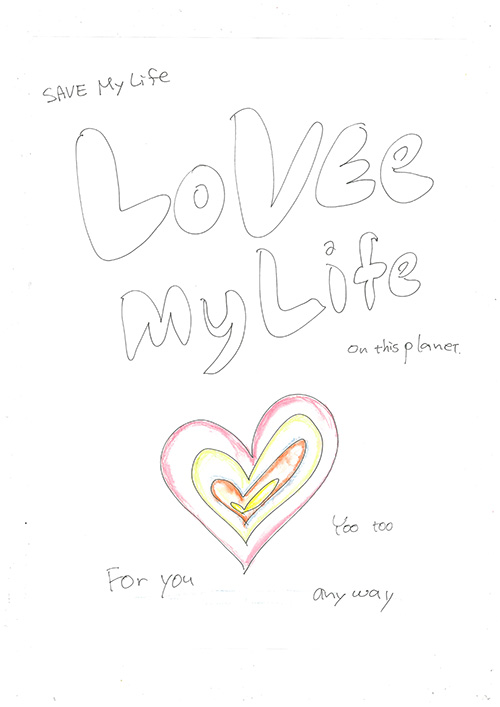 SAVE My Life
LoVEe
my Life
on this planet.
Yoo too
For you
any way